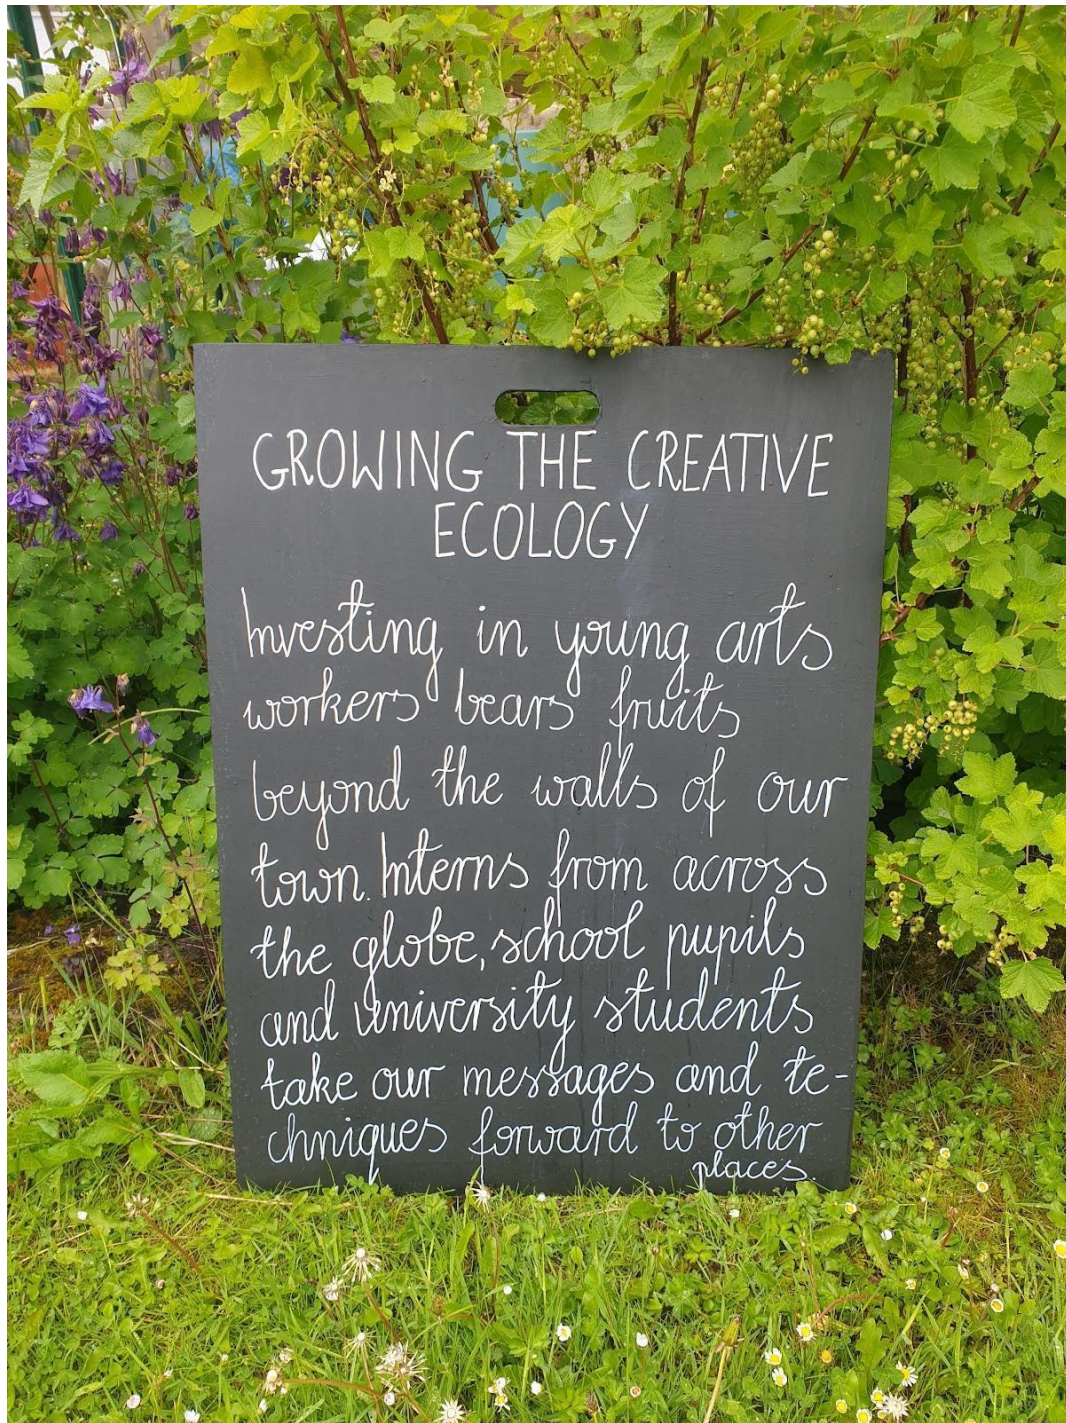 GROWING THE CREATIVE
ECOLOGY
Investing in young arts
workers bears fruits
beyond the walls of our
town. Interns from across
the globe, school pupils
and university students
take our messages and te-
chniques forward to other
places.